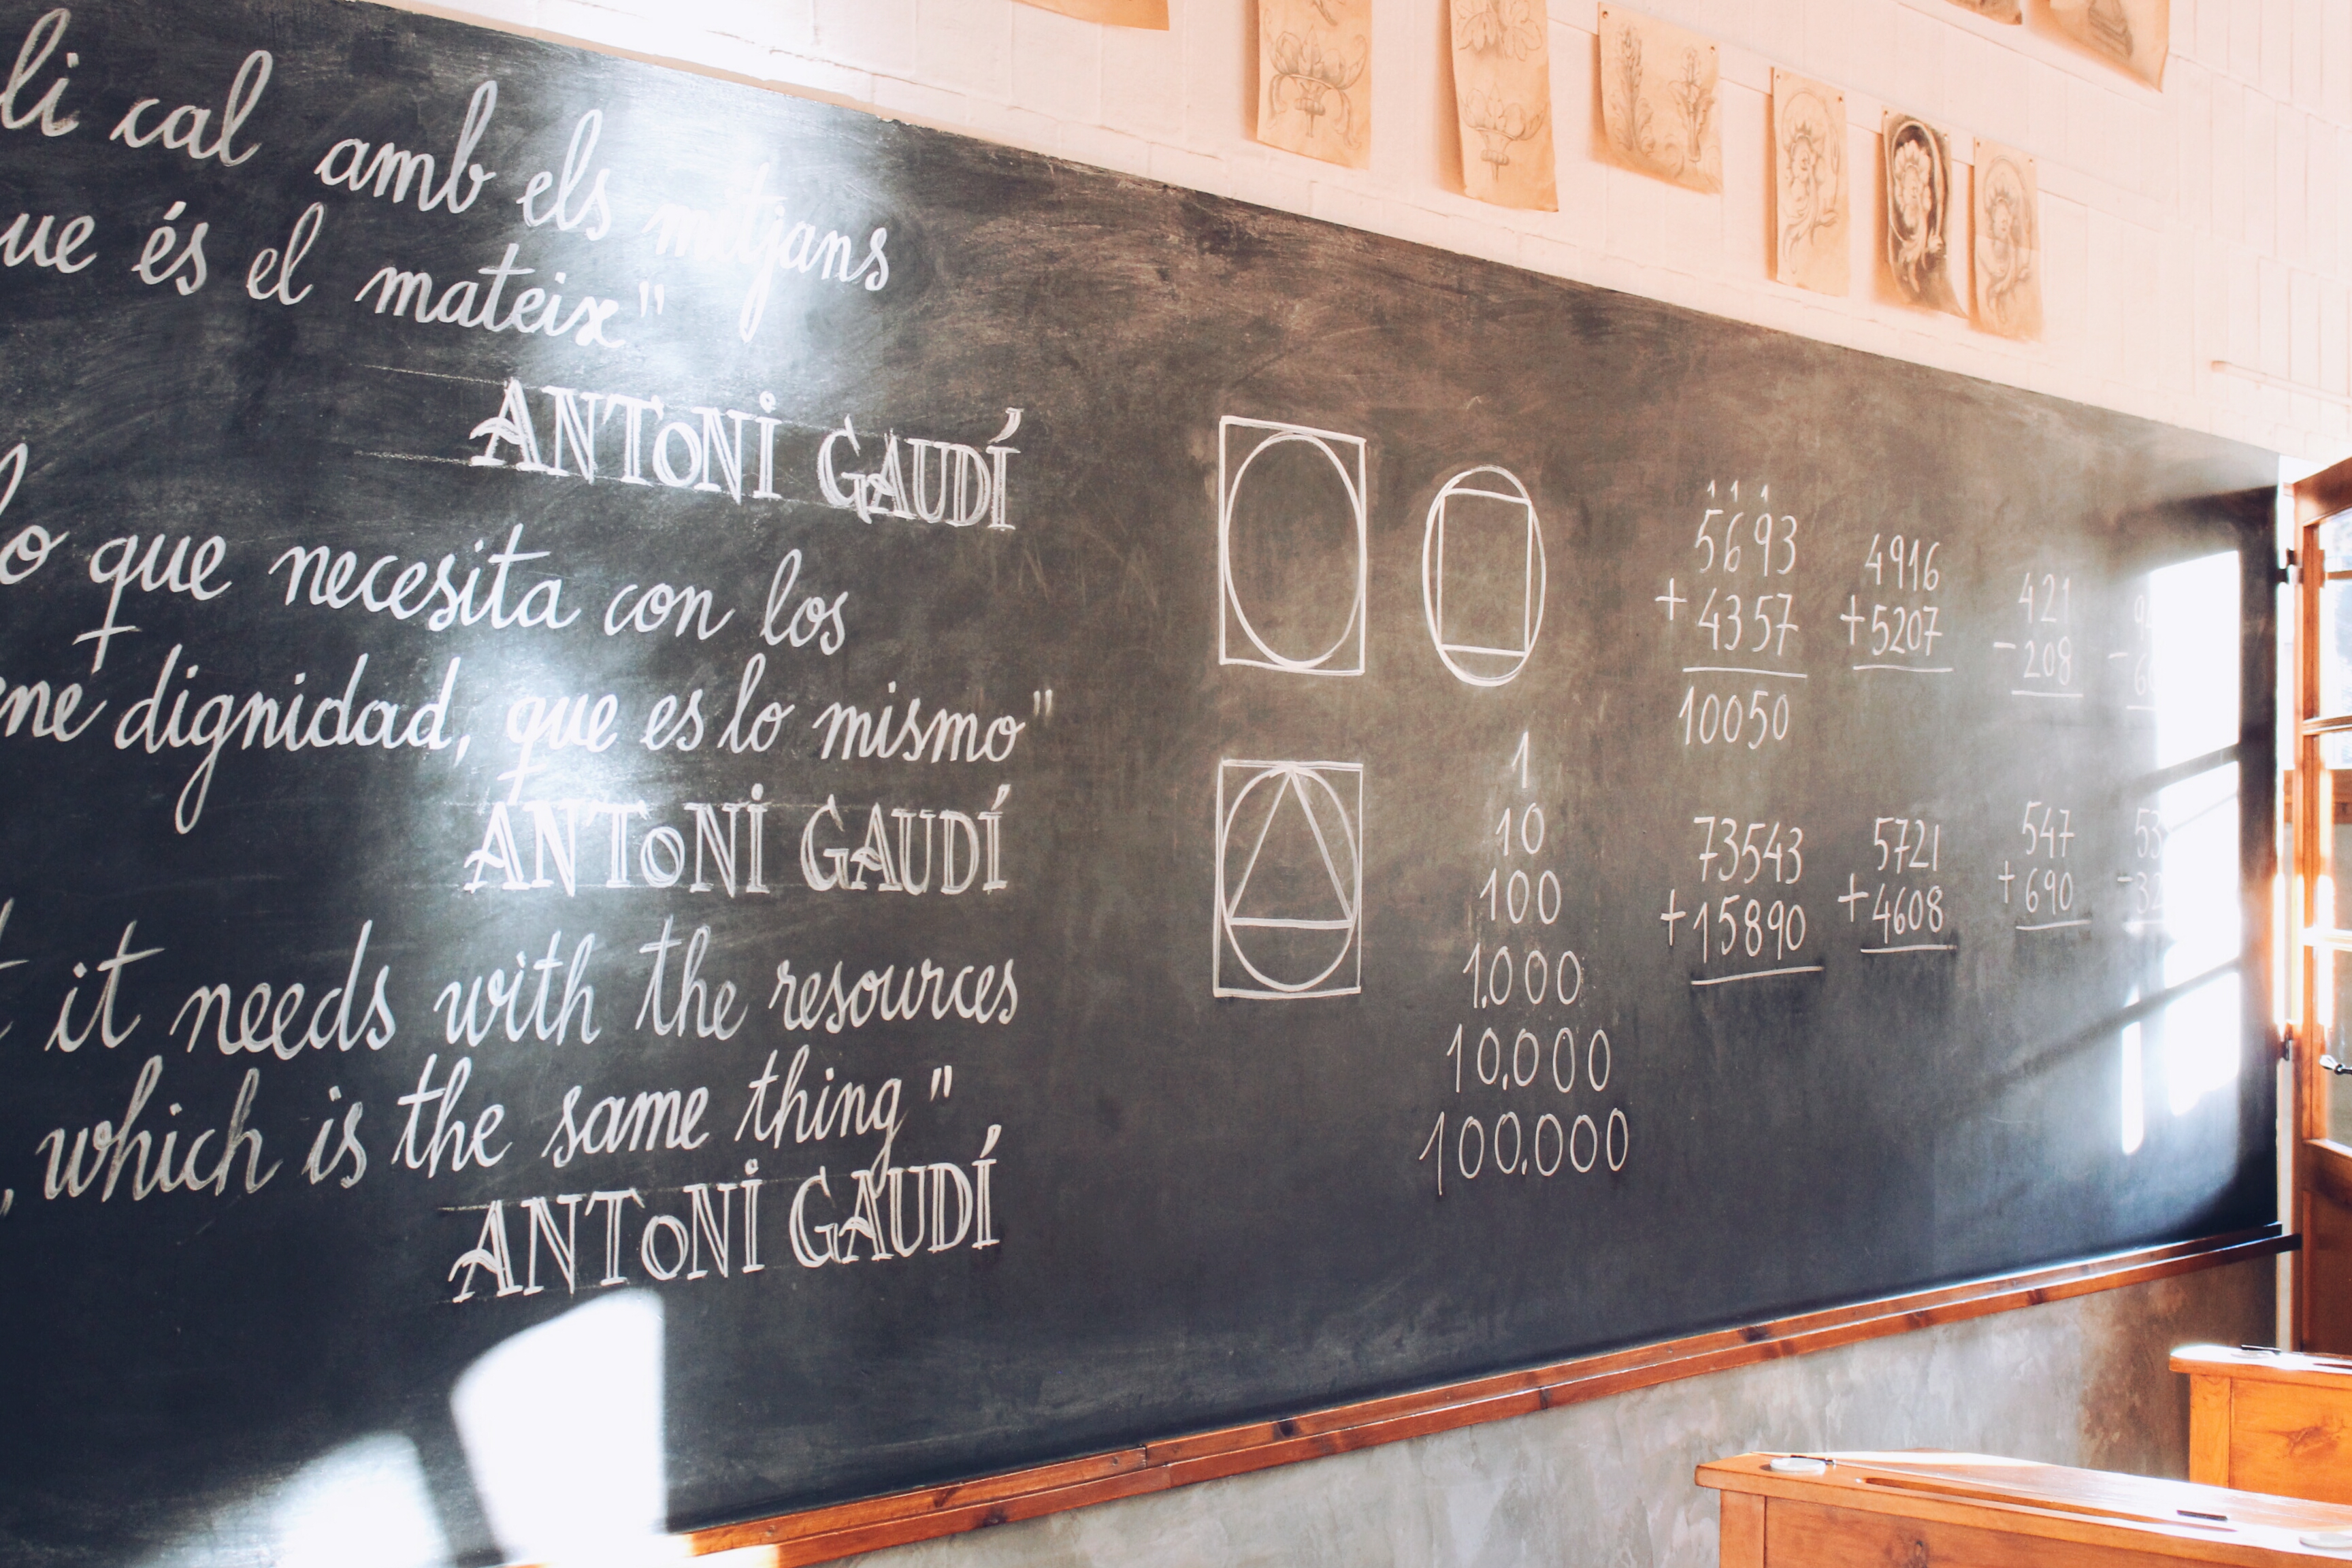 li cal amb els mitjans
ue és el mateix"
ANTONI GAUDÍ
lo que necesita con los
ne dignidad, que es lo mismo"
ANTONI GAUDÍ
it needs with the resources
, which is the same thing"
ANTONI GAUDÍ
1
10
100
1.000
10.000
100.000
1 1 1
5693
+ 4357
10050
4916
+ 5207
421
- 208
73543
+ 15890
5721
+ 4608
547
+ 690